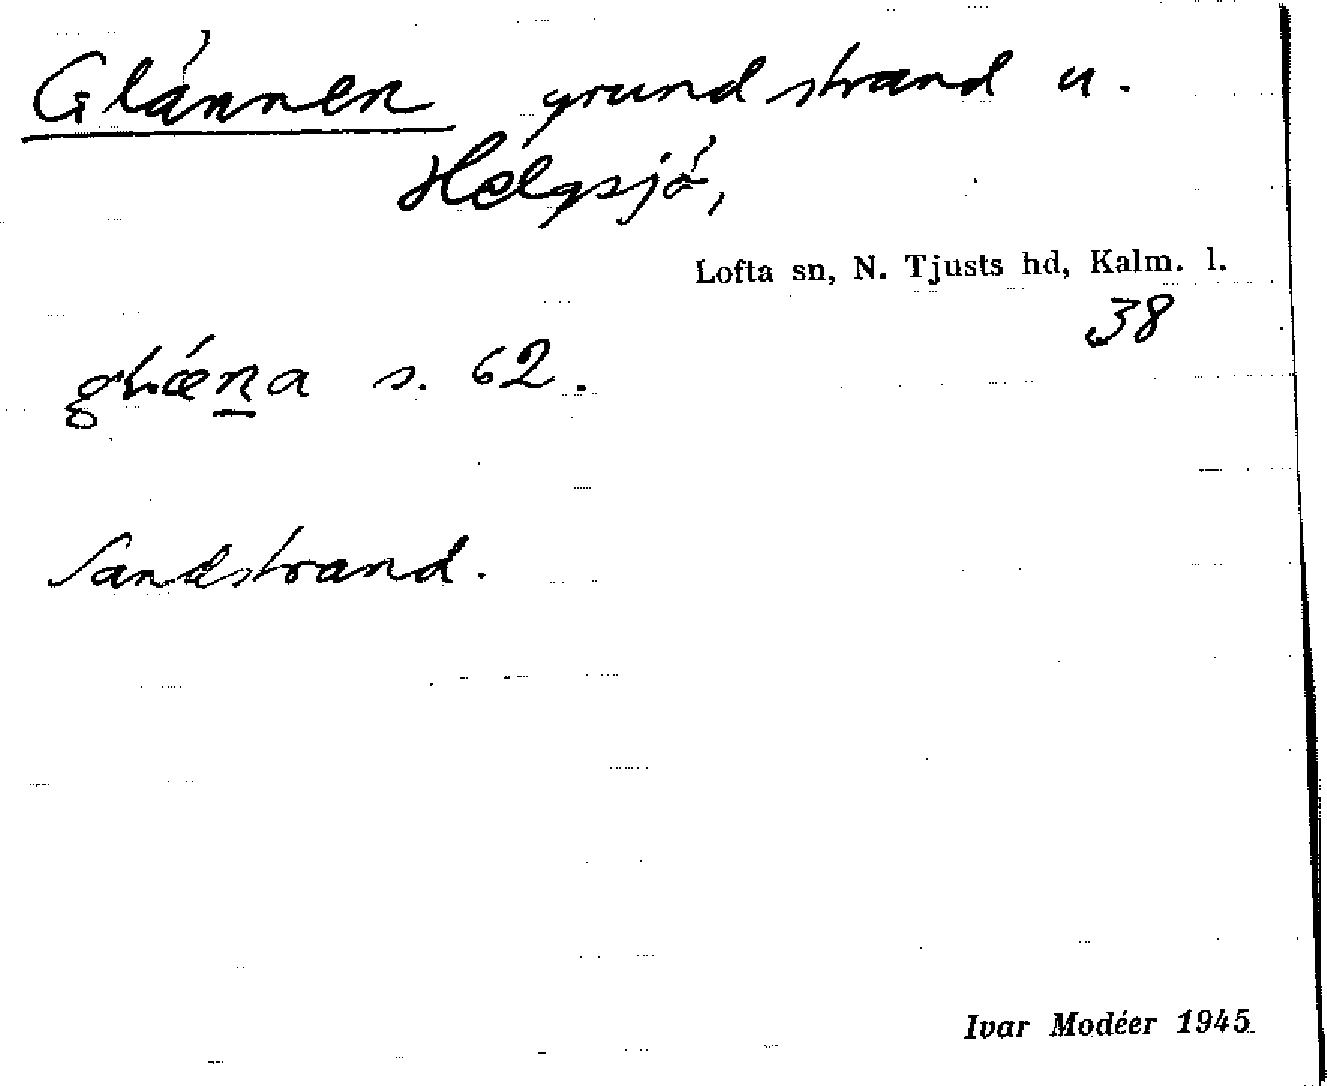 Glännen grundstrand u.
Helgsjö,
Lofta sn, N. Tjusts hd, Kalm. l.
38
s. 62.
Sandstrand.
Ivar Modéer 1945